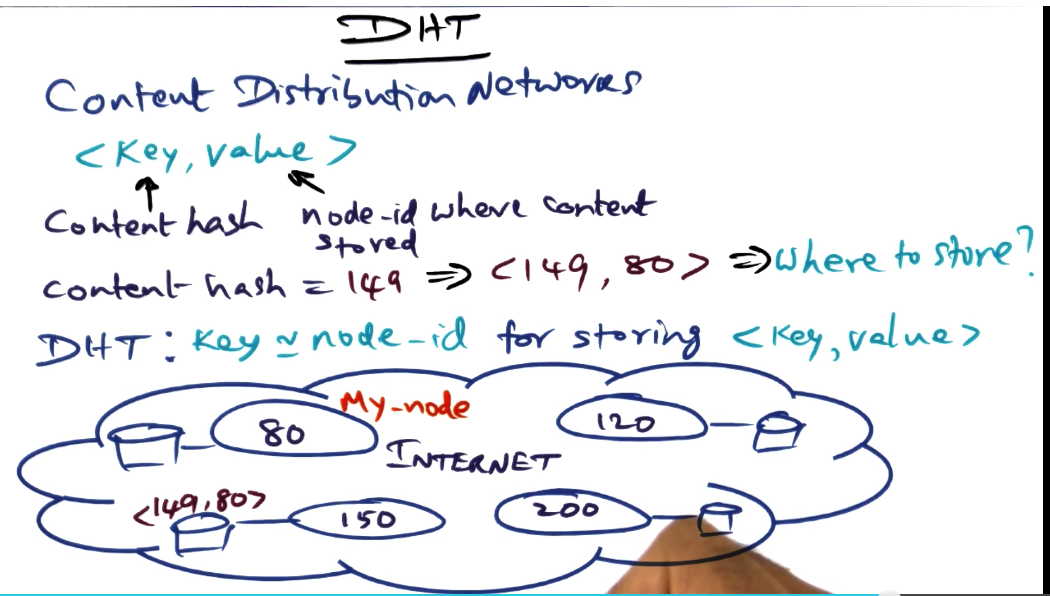 DHT
Content Distribution Networks
<Key, value>
Content hash node-id where content stored
content-hash = 149 ⇒ <149, 80> ⇒ where to store?
DHT: Key ≃ node-id for storing <key, value>
My-node
80
120
INTERNET
<149, 80>
150
200